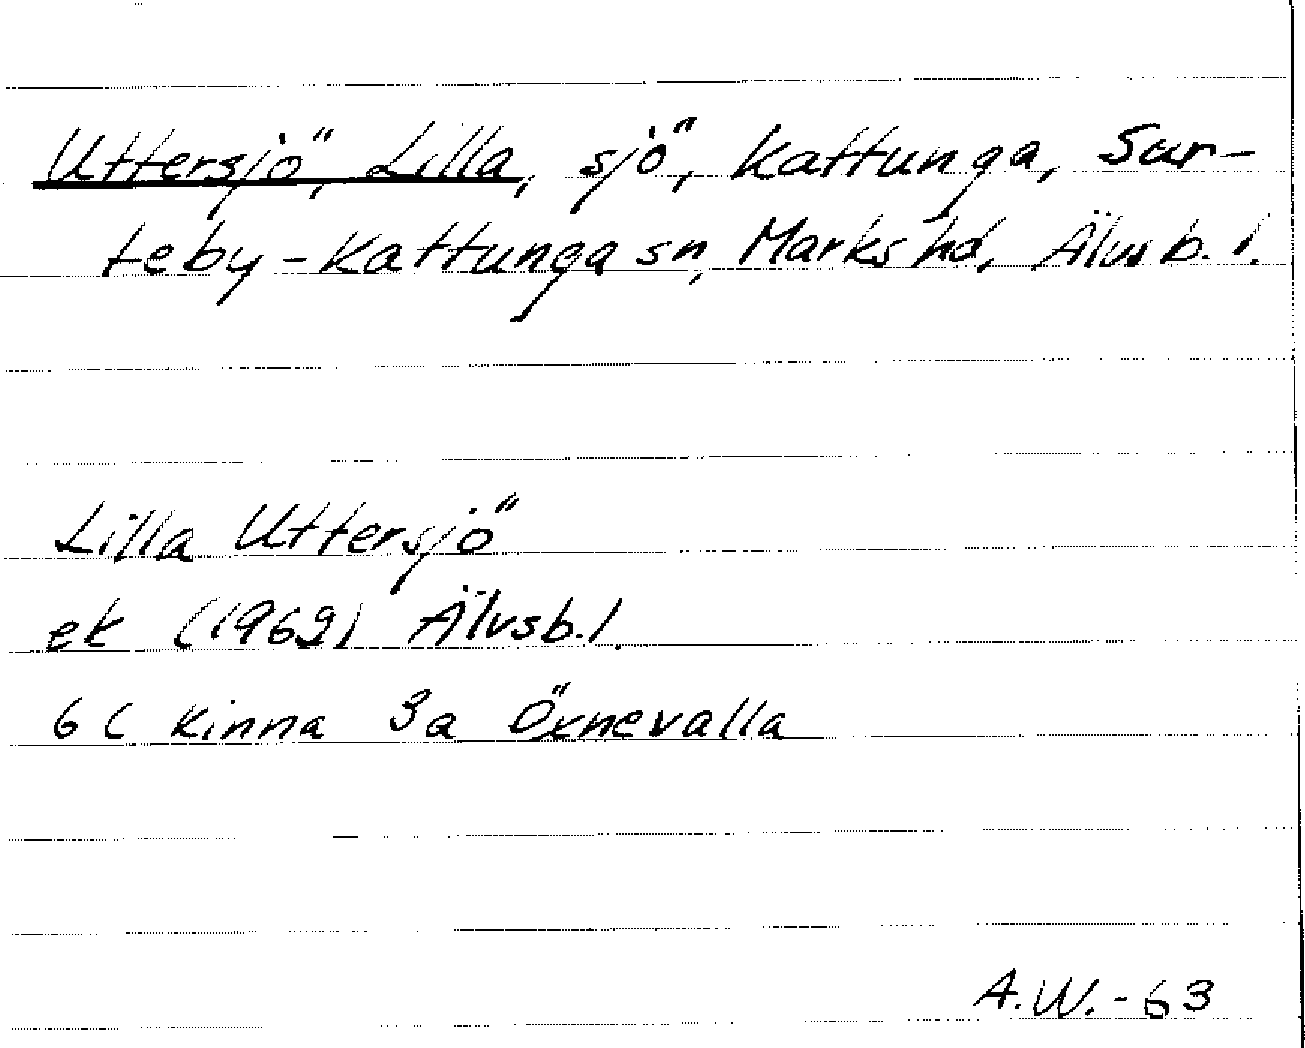 Uttersjö, Lilla, sjö, Kattunga, Sur-
teby-Kattunga sn, Marks hd, Älvsb. l.
Lilla Uttersjö
ek (1962) Älvsb. l.
6 C Kinna 3a Öxnevalla
A.W.-63